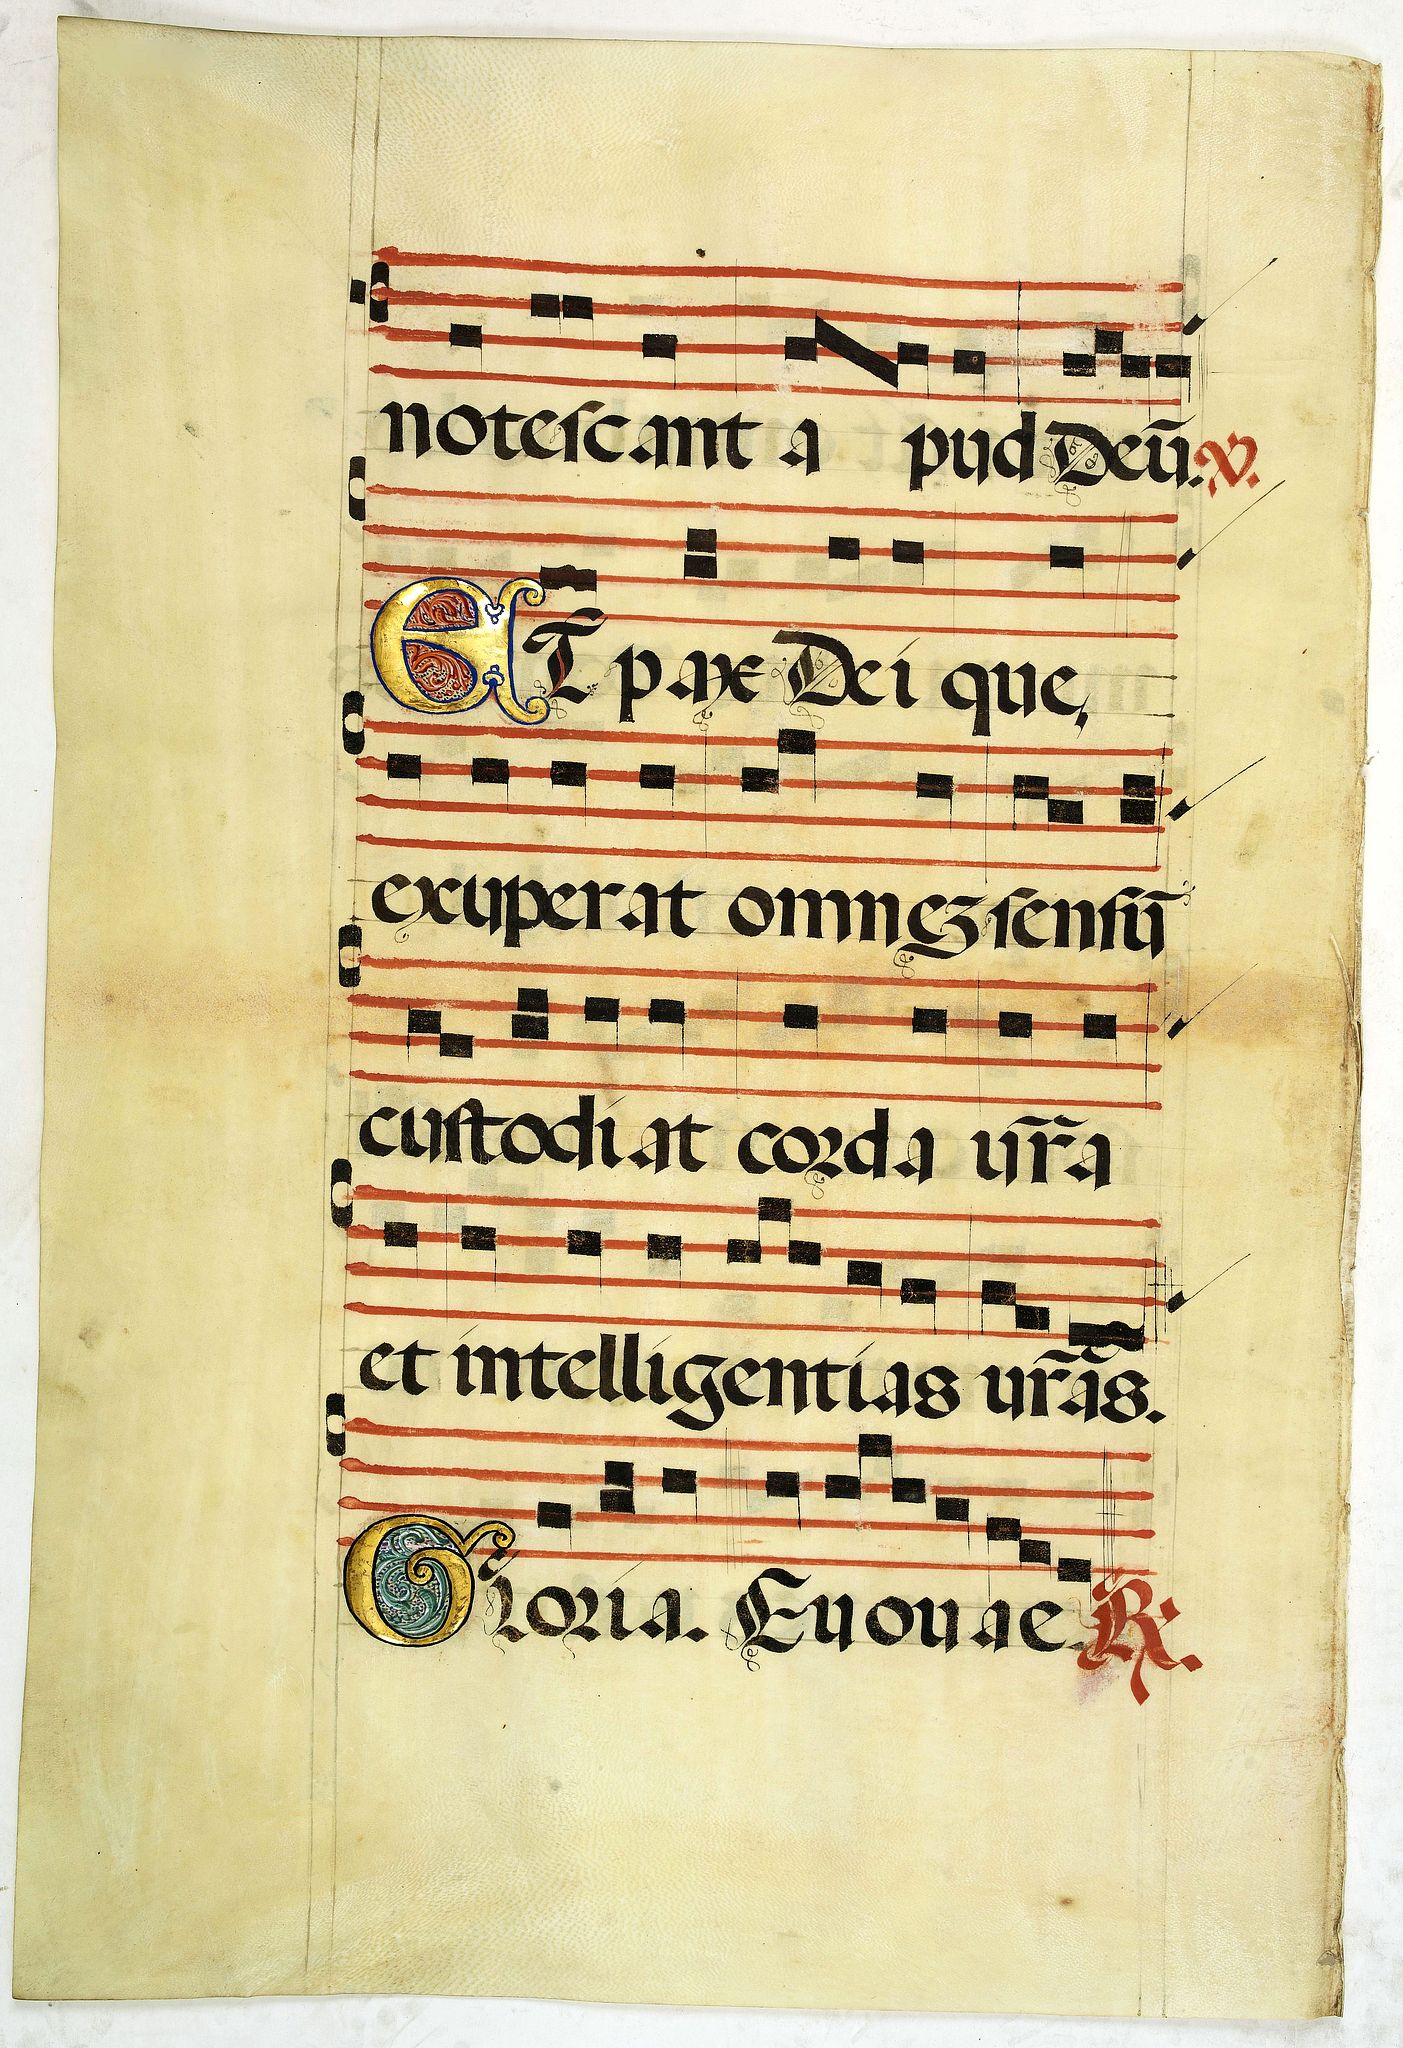 notescant a pud Deū. v.
ET pax Dei que,
exuperat omnēʒ sensū
custodiat corda vr̄a
et intelligentias vr̄ās.
Gloria. Euouae. R.